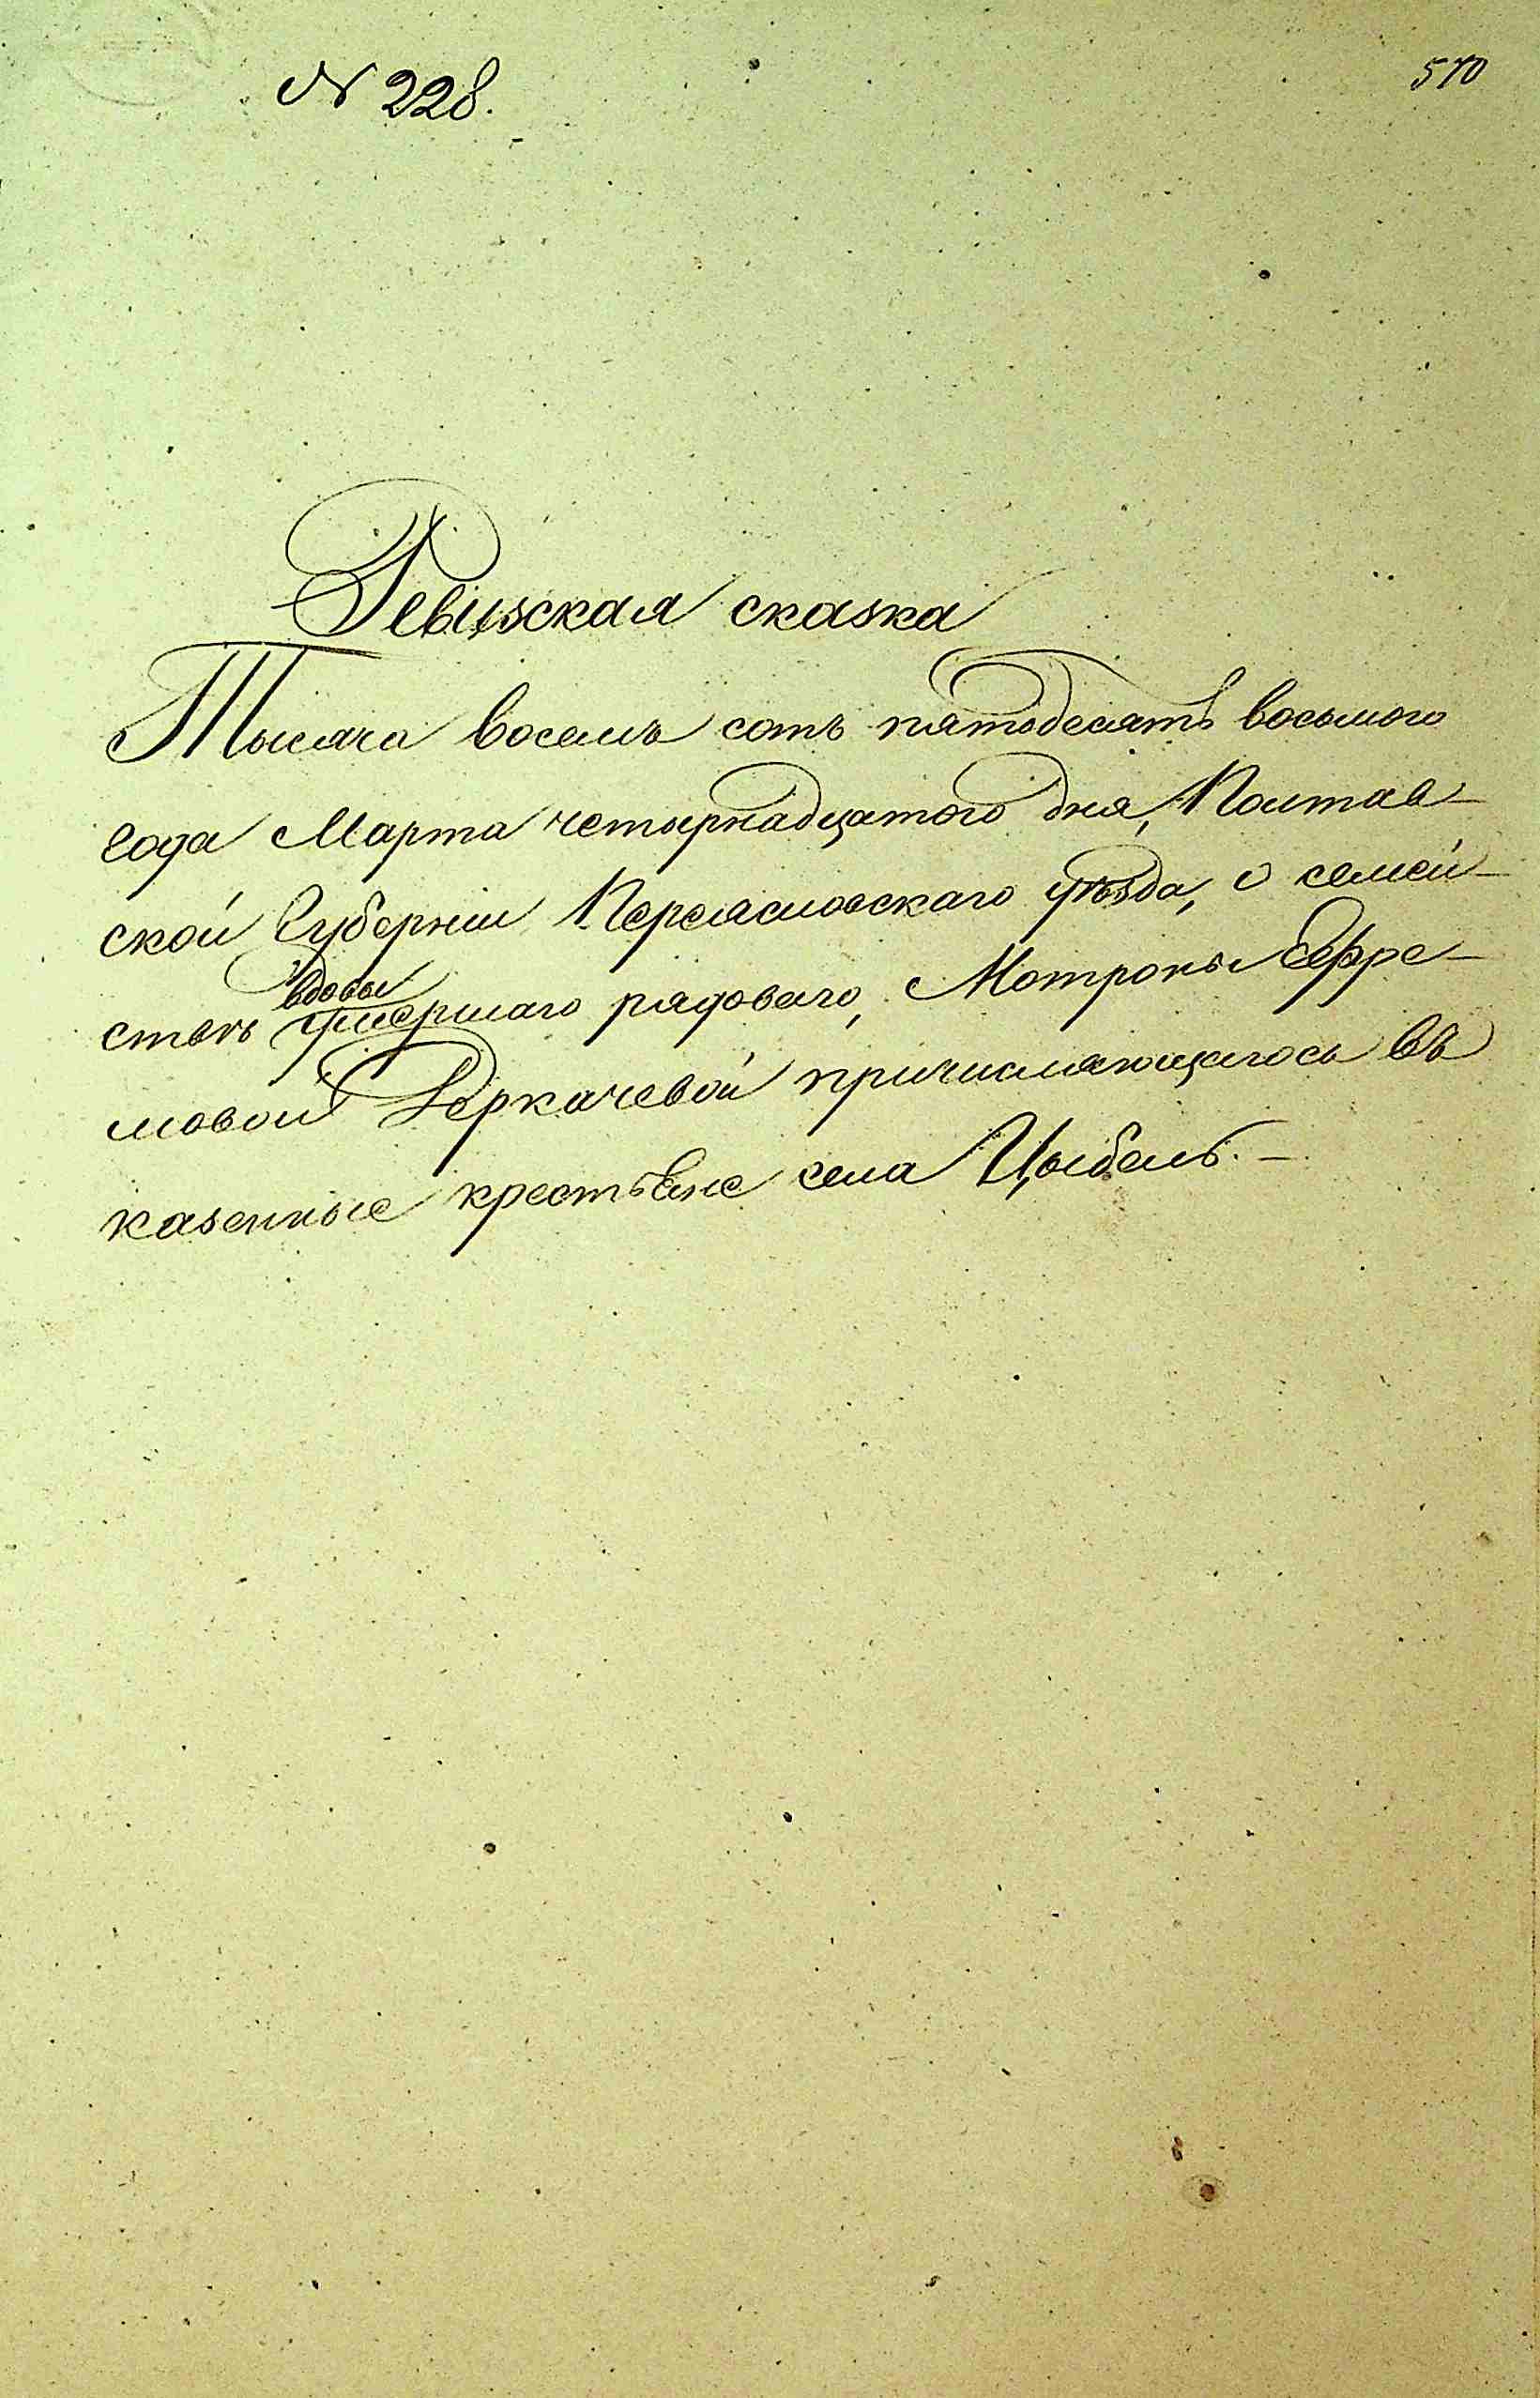 № 228.
570
Ревизская сказка
Тысяча восемь сотъ пятьдесятъ восьмого
года Марта четырнадцатого дня, Полтав-
ской Губерніи Переяславского уѣзда, о семей-
вдовы
ствѣ умершаго рядоваго, Мотроны Ефре-
мовой Деркачевой причисляющагось въ
казенные крестьяне села Цыбель. —